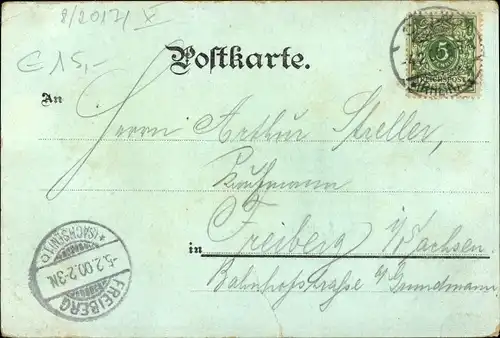 8/2017 X
€ 15,-
Postkarte.
5
REICHSPOST
An
Herrn Arthur Streller,
Kaufmann
Freiberg i/Sachsen.
in
Bahnhofstraße b/Grundmann
*(SACHSEN)1.c
-5.2.00.2-3N.
FREIBERG